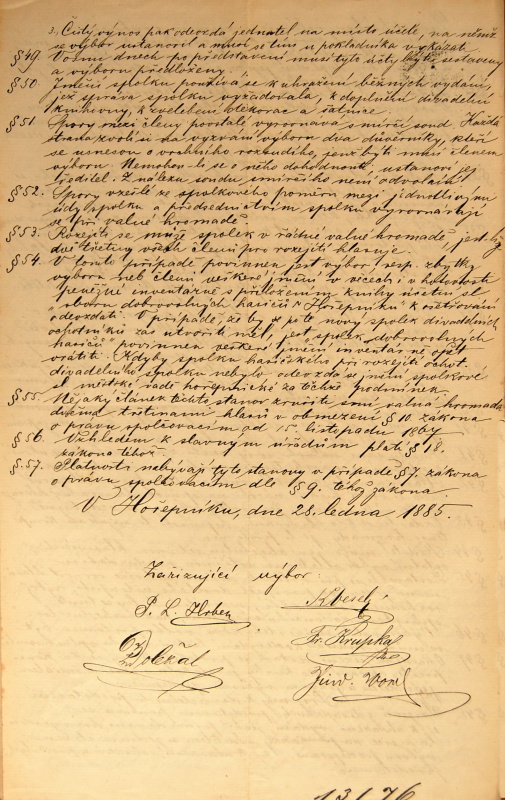 3. Čistý výnos pak odevzdá jednatel na místo účelu, na němž
se výbor ustanovil a musí se tím u pokladníka vykázat.
§ 49. V osmi dnech po představení musí tyto účty být sestaveny
a výboru předloženy.
§ 50. Jmění spolku používá se k uhražení běžných vydání,
jež správa spolku vyžadovala, k doplnění divadelní
knihovny, k zvelebení dekorac a šatnice.
§ 51. Spory mezi členy povstalé, vyrovnává smírčí soud. Každá
strana zvolí si na vyzvání výboru dva důvěrníky, kteří
se usnesou o vrchního rozsudího, jenž býti musí členem
výboru. Nemohou-li se o něho dohodnouti, ustanoví jej
ředitel. Z nálezu soudu smírčího není odvolání.
§ 52. Spory vzešlé ze spolkového poměru mezi jednotlivými
údy spolku a předsednictvím spolku vyrovnávají
se při valné hromadě.
§ 53. Rozejíti se může spolek v řádné valné hromadě, jest-liže
dvě třetiny všech členů pro rozejití hlasuje.
§ 54. V tomto případě povinnen jest výbor resp. zbytky
výboru neb členů veškeré jmění v věcech i v hotovosti
peněžné inventárně s přiložením knihy účetní se
"sboru dobrovolných hasičů v Hořepníku" k ošetřování
odevzdati. V případě, že by se pak nový spolek divadelních
ochotníků zas utvořiti měl, jest spolek "dobrovolných
hasičů" povinnen veškeré jmění inventárně opět
vrátiti. Kdyby spolku hasičského při rozejití ochot.
divadelního spolku nebylo, odevzdá se jmění spolkové
sl. městské radě hořepnické za těchže podmínek.
§ 55. Nějaký článek těchto stanov zrušiti smí valná hromada
dvěma třetinami hlasů v obmezení § 10. zákona
o právu spolčovacím od 15. listopadu 1867
§ 56. Vzhledem k slavným úřadům platí § 18.
zákona téhož.
§. 57. Platnosti nabývají tyto stanovy v případě § 7. zákona
o právu spolkovacím dle § 9. téhož zákona.
V Hořepníku, dne 28. ledna 1885.
Zařizující výbor.
P. L. Hrben
K Veselý
Doležal
Fr. Krupka
Jind. Vorel
13176